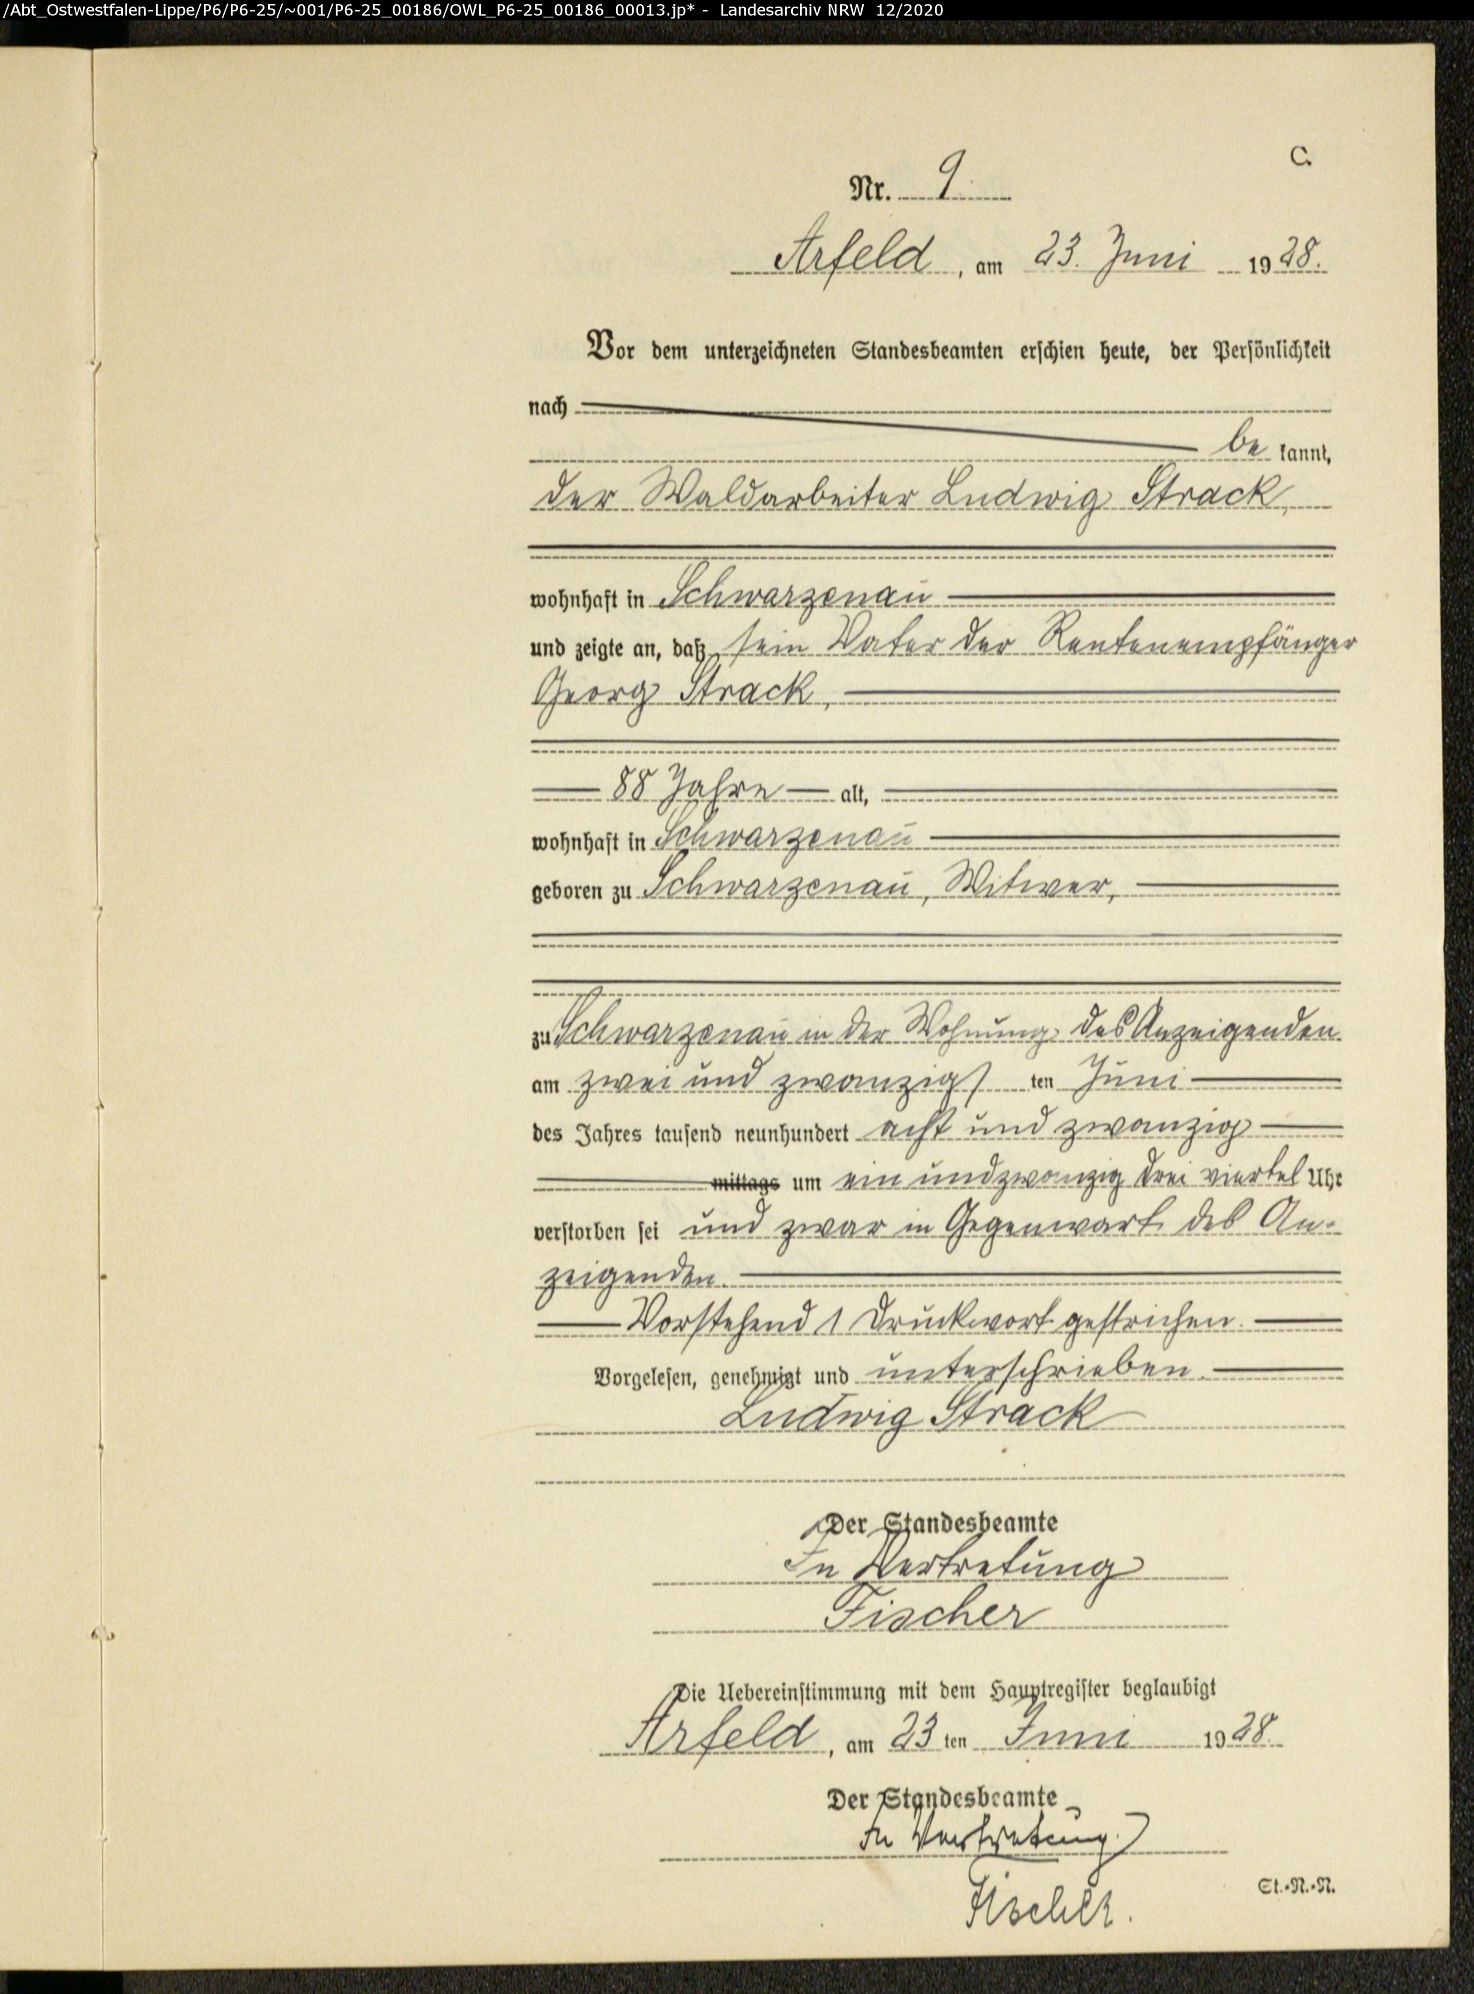 /Abt_Ostwestfalen-Lippe/P6/P6-25/~001/P6-25_00186/OWL_P6-25_00186_00013.jp* - Landesarchiv NRW 12/2020
C.
Nr. 9
Arfeld, am 23. Juni 1928.
Vor dem unterzeichneten Standesbeamten erschien heute, der Persönlichkeit
nach
be kannt,
der Waldarbeiter Ludwig Strack,
wohnhaft in Schwarzenau
und zeigte an, daß sein Vater der Rentenempfänger
Georg Strack,
88 Jahre alt,
wohnhaft in Schwarzenau
geboren zu Schwarzenau, Witwer,
zu Schwarzenau in der Wohnung des Anzeigenden
am zwei und zwanzigs ten Juni
des Jahres tausend neunhundert acht und zwanzig
mittags um ein und zwanzig drei viertel Uhr
verstorben sei und zwar in Gegenwart des An-
zeigenden.
Vorstehend 1 Druckwort gestrichen.
Vorgelesen, genehmigt und unterschrieben.
Ludwig Strack
Der Standesbeamte
In Vertretung
Fischer
Die Uebereinstimmung mit dem Hauptregister beglaubigt
Arfeld, am 23 ten Juni 1928.
Der Standesbeamte
In Vertretung
Fischer.
St.-R.-N.